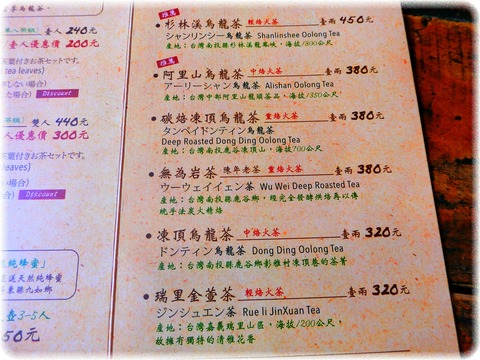 壹人 240元
壹人優惠價 200元
tea leaves)
Discount
雙人 440元
優惠價 300元
茶葉付きお茶セットです。
leaves)
Discount
純蜂蜜」
送天然純蜂蜜
壺3-5人
50元
推薦
杉林溪烏龍茶 輕焙火茶 臺兩 450元
シャンリンシー烏龍茶 Shanlinshee Oolong Tea
產地:台灣南投縣杉林溪龍鳳峽,海拔/300公尺
推薦
阿里山烏龍茶 中焙火茶 臺兩 380元
アーリーシャン烏龍茶 Alishan Oolong Tea
產地:台灣中部阿里山龍頭茶品,海拔/350公尺
碳焙凍頂烏龍茶 重焙火茶 臺兩 380元
タンペイドンティン烏龍茶
Deep Roasted Dong Ding Oolong Tea
產地:台灣南投鹿谷凍頂山,海拔700公尺
無為岩茶 陳年老茶 重焙火茶 臺兩 380元
ウーウェイイェン茶 Wu Wei Deep Roasted Tea
產地:台灣南投縣鹿谷鄉,經完全發酵烘焙再以傳
統手法炭火精焙
凍頂烏龍茶 中焙火茶 臺兩 320元
ドンティン烏龍茶 Dong Ding Oolong Tea
產地:台灣南投縣鹿谷鄉彰雅村凍頂巷的茶菁
瑞里金萱茶 輕焙火茶 臺兩 320元
ジンジュエン茶 Rue li JinXuan Tea
產地:台灣嘉義瑞里山區,海拔/200公尺,
故擁有獨特的清雅花香